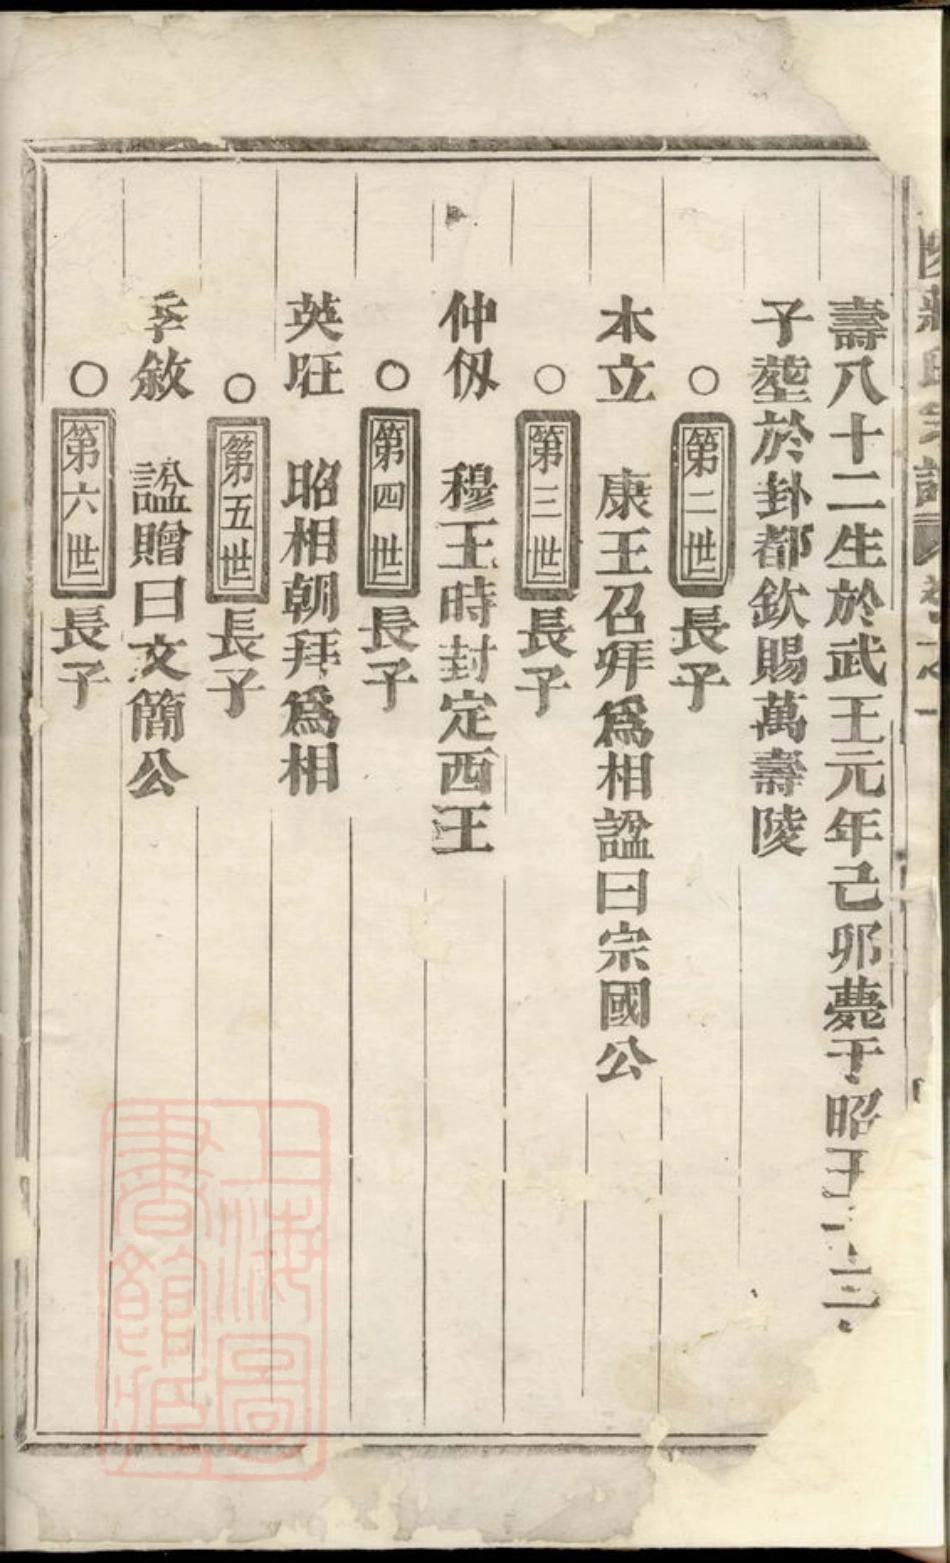 蔣氏宗譜 卷之一
壽八十二生於武王元年己卯薨于昭王十三
子塟於卦都欽賜萬壽陵
○第二世長子
木立 康王召拜爲相諡曰宗國公
○第三世長子
仲仭 穆王時封定西王
○第四世長子
英旺 昭相朝拜爲相
○第五世長子
季敘 諡贈曰文簡公
○第六世長子
上海圖
書館藏